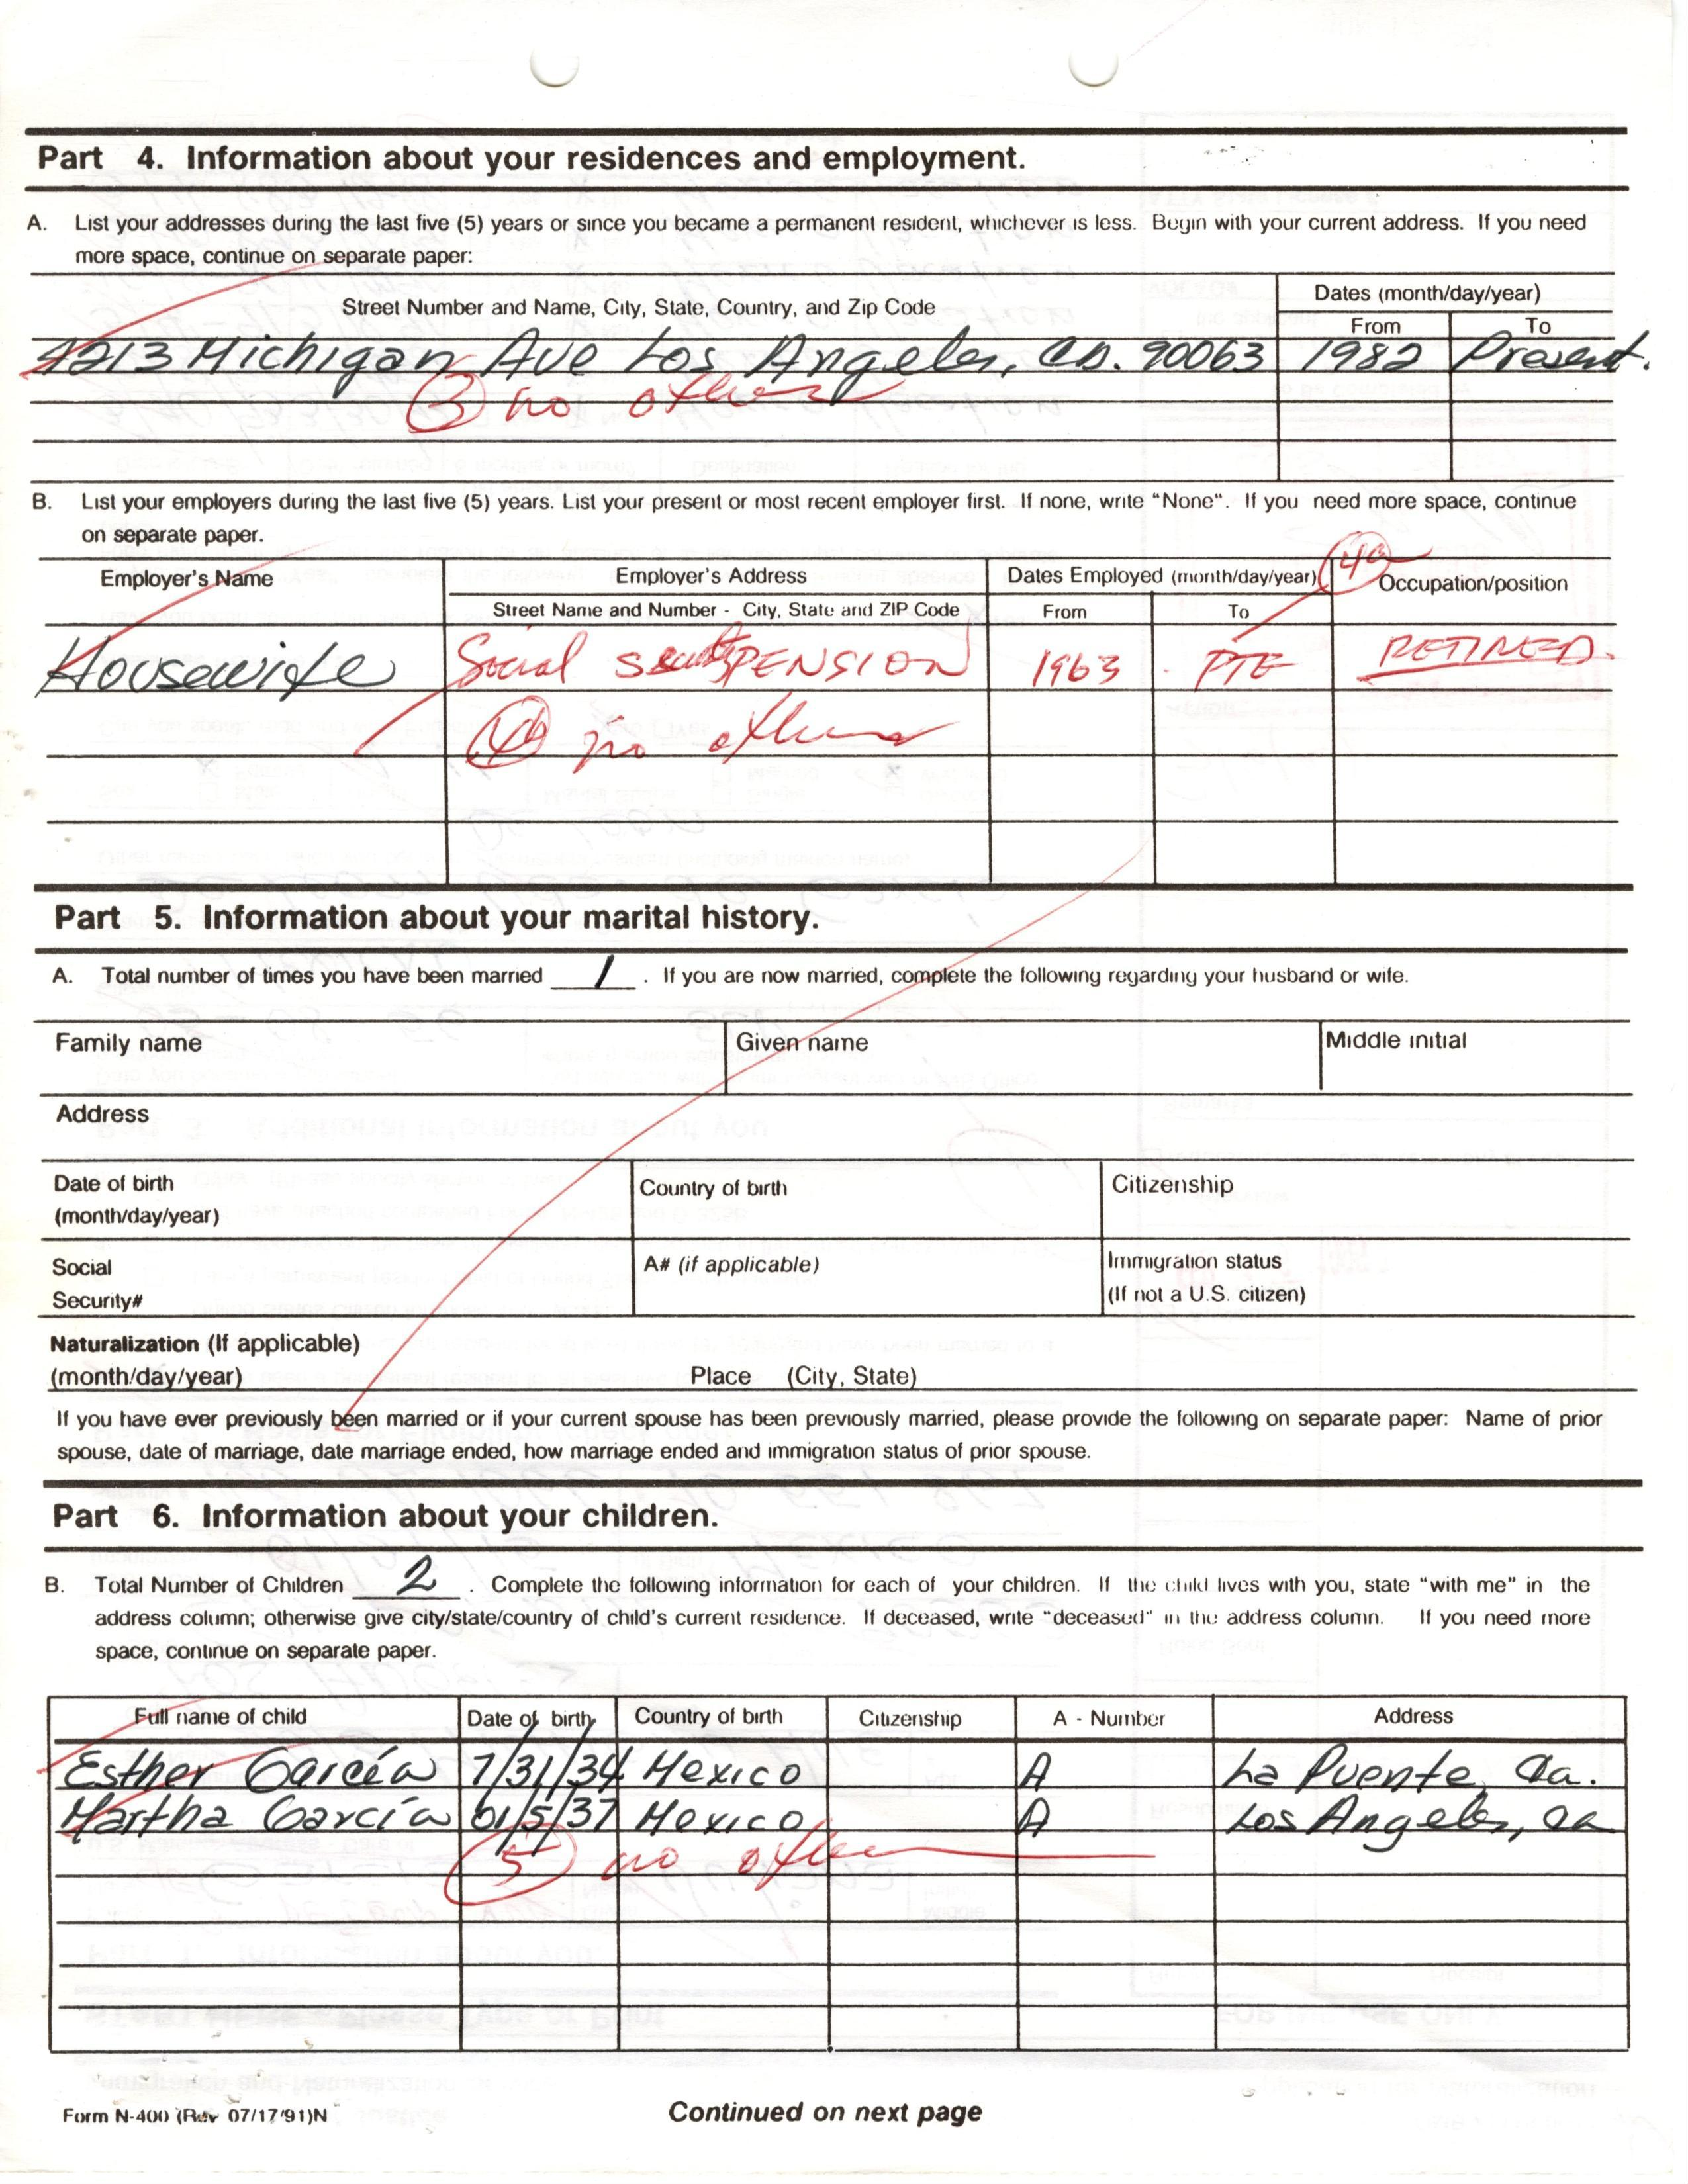 Part 4. Information about your residences and employment.
A. List your addresses during the last five (5) years or since you became a permanent resident, whichever is less. Begin with your current address. If you need
more space, continue on separate paper:
Street Number and Name, City, State, Country, and Zip Code
Dates (month/day/year)
From To
4213 Michigan Ave Los Angeles, CA. 90063 1982 Present.
3 no others
B. List your employers during the last five (5) years. List your present or most recent employer first. If none, write "None". If you need more space, continue
on separate paper.
Employer's Name Employer's Address Dates Employed (month/day/year) 4a Occupation/position
Street Name and Number - City, State and ZIP Code From To
Housewife Social Security PENSION 1963 - PTE RETIRED.
4b no others
Part 5. Information about your marital history.
A. Total number of times you have been married 1 . If you are now married, complete the following regarding your husband or wife.
Family name Given name Middle initial
Address
Date of birth
(month/day/year)
Country of birth Citizenship
Social
Security#
A# (if applicable)
Immigration status
(If not a U.S. citizen)
Naturalization (If applicable)
(month/day/year) Place (City, State)
If you have ever previously been married or if your current spouse has been previously married, please provide the following on separate paper: Name of prior
spouse, date of marriage, date marriage ended, how marriage ended and immigration status of prior spouse.
Part 6. Information about your children.
B. Total Number of Children 2 . Complete the following information for each of your children. If the child lives with you, state "with me" in the
address column; otherwise give city/state/country of child's current residence. If deceased, write "deceased" in the address column. If you need more
space, continue on separate paper.
Full name of child Date of birth Country of birth Citizenship A - Number Address
Esther García 7/31/34 Mexico A La Puente, Ca.
Martha García 01/5/37 Mexico A Los Angeles, Ca
5 no others
Form N-400 (Rev 07/17/91)N Continued on next page